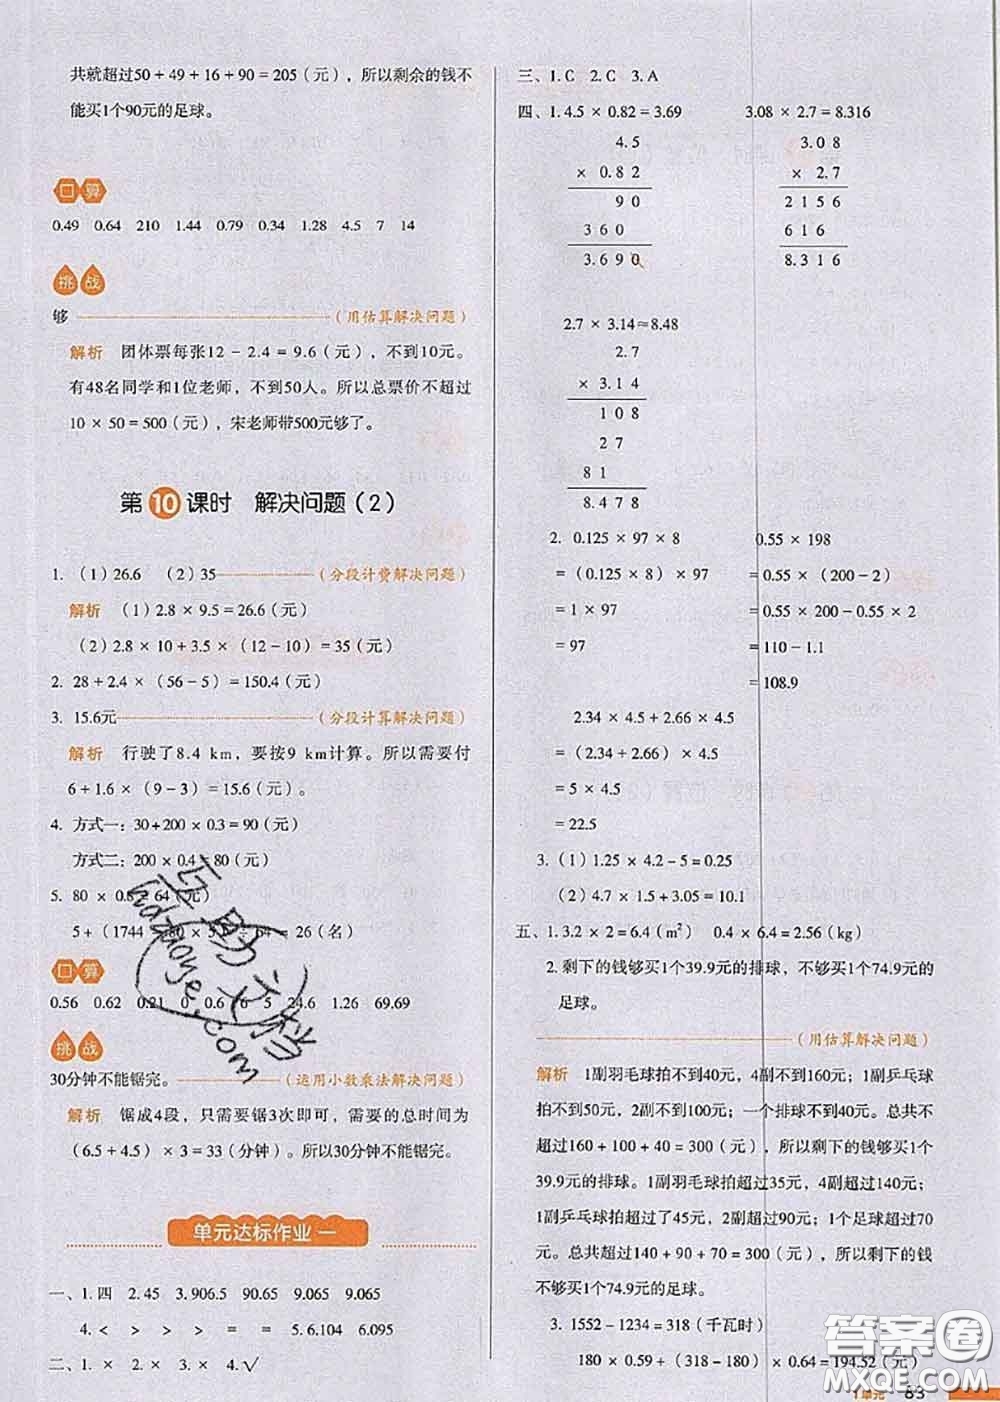 共就超过50 + 49 + 16 + 90 = 205（元），所以剩余的钱不
能买1个90元的足球。
口算
0.49 0.64 210 1.44 0.79 0.34 1.28 4.5 7 14
挑战
够（用估算解决问题）
解析 团体票每张12 - 2.4 = 9.6（元），不到10元。
有48名同学和1位老师，不到50人。所以总票价不超过
10 × 50 = 500（元），宋老师带500元够了。
第10课时 解决问题（2）
1. （1）26.6 （2）35（分段计费解决问题）
解析 （1）2.8 × 9.5 = 26.6（元）
（2）2.8 × 10 + 3.5 ×（12 - 10）= 35（元）
2. 28 + 2.4 ×（56 - 5）= 150.4（元）
3. 15.6元（分段计算解决问题）
解析 行驶了8.4 km，要按9 km计算。所以需要付
6 + 1.6 ×（9 - 3）= 15.6（元）。
4. 方式一：30 + 200 × 0.3 = 90（元）
方式二：200 × 0.4 = 80（元）
5. 80 × 0.8 = 64（元）
5 +（1744 - 80 × 5）÷ 64 = 26（名）
口算
0.56 0.62 0.21 0 0.6 6 5 24.6 1.26 69.69
挑战
30分钟不能锯完。（运用小数乘法解决问题）
解析 锯成4段，只需要锯3次即可，需要的总时间为
（6.5 + 4.5）× 3 = 33（分钟）。所以30分钟不能锯完。
单元达标作业一
一、1. 四 2. 45 3. 906.5 90.65 9.065 9.065
4. < > > > = = 5. 6.104 6.095
二、1. × 2. × 3. × 4. √
三、1. C 2. C 3. A
四、1. 4.5 × 0.82 = 3.69 3.08 × 2.7 = 8.316
4.5 3.08
× 0.82 × 2.7
90 2156
360 616
3.690 8.316
2.7 × 3.14 ≈ 8.48
2.7
× 3.14
108
27
81
8.478
2. 0.125 × 97 × 8 0.55 × 198
=（0.125 × 8）× 97 = 0.55 ×（200 - 2）
= 1 × 97 = 0.55 × 200 - 0.55 × 2
= 97 = 110 - 1.1
= 108.9
2.34 × 4.5 + 2.66 × 4.5
=（2.34 + 2.66）× 4.5
= 5 × 4.5
= 22.5
3.（1）1.25 × 4.2 - 5 = 0.25
（2）4.7 × 1.5 + 3.05 = 10.1
五、1. 3.2 × 2 = 6.4（m²） 0.4 × 6.4 = 2.56（kg）
2. 剩下的钱够买1个39.9元的排球，不够买1个74.9元的
足球。
（用估算解决问题）
解析 1副羽毛球拍不到40元，4副不到160元；1副乒乓球
拍不到50元，2副不到100元；一个排球不到40元。总共不
超过160 + 100 + 40 = 300（元），所以剩下的钱够买1个
39.9元的排球。1副羽毛球拍超过35元，4副超过140元；
1副乒乓球拍超过了45元，2副超过90元；1个足球超过70
元。总共超过140 + 90 + 70 = 300（元），所以剩下的钱
不够买1个74.9元的足球。
3. 1552 - 1234 = 318（千瓦时）
180 × 0.59 +（318 - 180）× 0.64 = 194.52（元）
1单元 83
答案圈
MXQE.COM